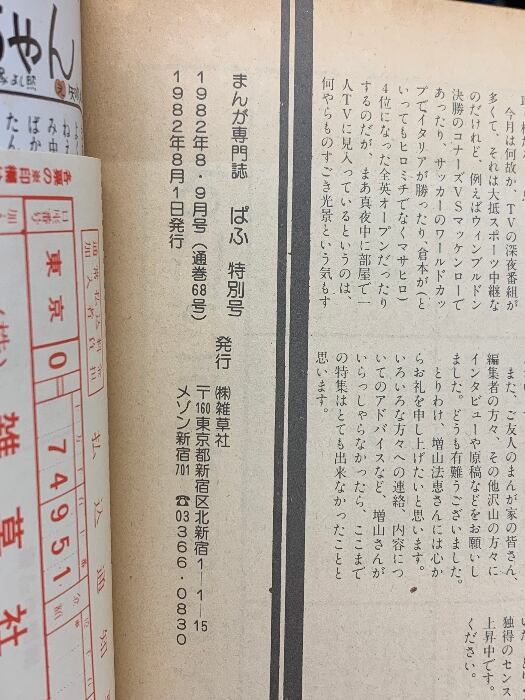 今月は何故か、TVの深夜番組が
多くて、それは大抵スポーツ中継な
のだけれど、例えばウィンブルドン
決勝のコナーズVSマッケンローで
あったり、サッカーのワールドカッ
プでイタリアが勝ったり、倉本が(と
いってもヒロミチでなくマサヒロ)
4位になった全英オープンだったり
するのだが、まあ真夜中に部屋で一
人TVに見入っているというのは、
何やらものすごき光景という気もす
また、ご友人のまんが家の皆さん、
編集者の方々、その他沢山の方々に
インタビューや原稿などをお願いし
ました。どうも有難うございました。
とりわけ、増山法恵さんには心か
らお礼を申し上げたいと思います。
いろいろな方々への連絡、内容につ
いてのアドバイスなど、増山さんが
いらっしゃらなかったら、ここまで
の特集はとても出来なかったことと
思います。
独得のセンス
上昇中です。
ください。
まんが専門誌 ぱふ 特別号
1982年8・9月号(通巻68号)
1982年8月1日発行
発行 ㈱雑草社
〒160東京都新宿区北新宿1—1—15
メゾン新宿701 ☎03・366・0830
ちゃん
払込通知
口座番号
東京 0 74951
金額
雑草社